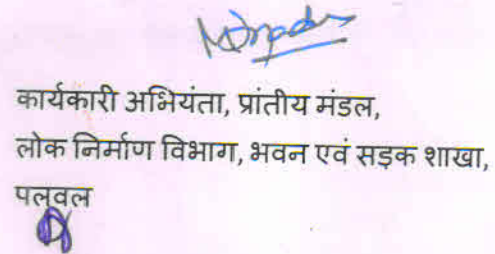 कार्यकारी अभियंता, प्रांतीय मंडल,
लोक निर्माण विभाग, भवन एवं सड़क शाखा,
पलवल